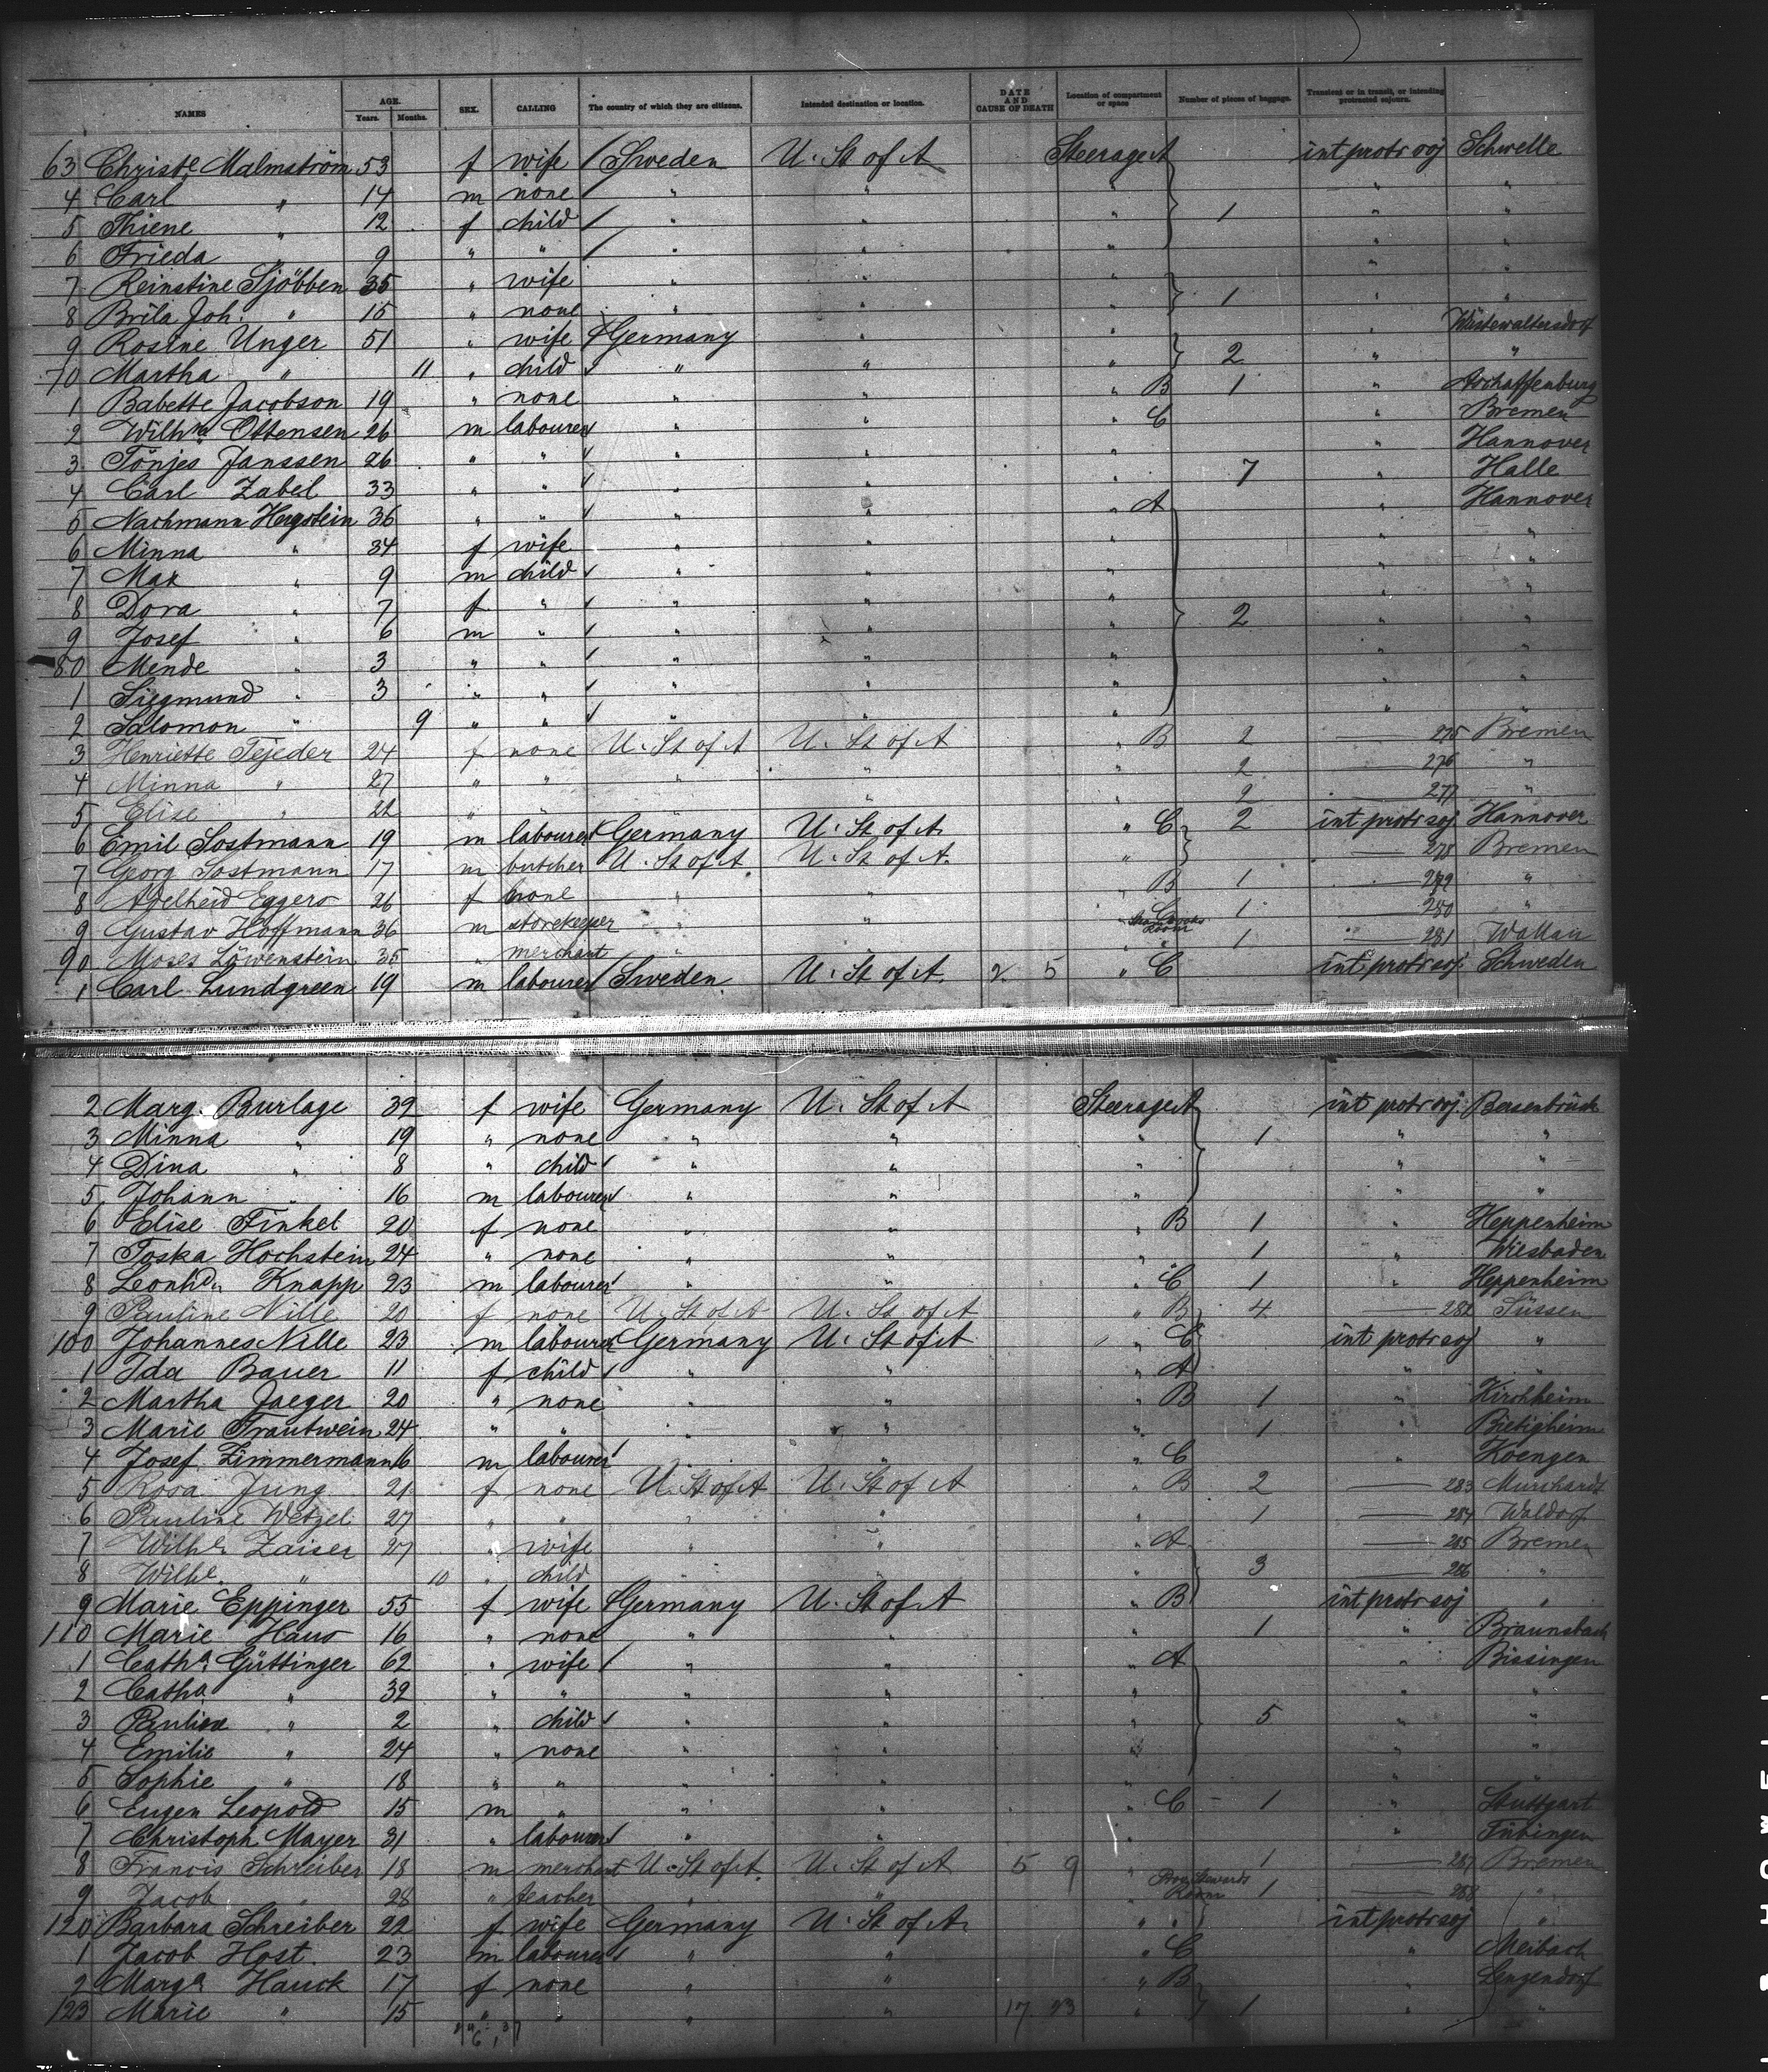 NAMES AGE. Years. Months. SEX. CALLING The country of which they are citizens. Intended destination or location. DATE AND CAUSE OF DEATH Location of compartment or space Number of pieces of baggage. Transient or in transit, or intending protracted sojourn.
63 Christe Malmström 53 f wife Sweden U. St of A Steerage A int protr soj Schwelle
4 Carl " 14 m none " " " " "
5 Thiene " 12 f child " " " 1 " "
6 Frieda " 9 " " " " " " "
7 Reinstine Sjöbben 35 " wife " " " " "
8 Brila Joh. " 15 " none " " " 1 " "
9 Rosine Unger 51 " wife Germany " " " Wüstewaltersdorf
70 Martha " 11 " child " " " 2 " "
1 Babette Jacobson 19 " none " " " B 1 " Aschaffenburg
2 Wilhm Ottensen 26 m labourer " " " C " Bremen
3 Tönjes Janssen 26 " " " " " " Hannover
4 Carl Zabel 33 " " " " " 7 " Halle
5 Nachmann Hergstein 36 " " " " " A " Hannover
6 Minna " 34 f wife " " " " "
7 Max " 9 m child " " " " "
8 Dora " 7 f " " " " 2 " "
9 Josef " 6 m " " " " " "
80 Mende " 3 " " " " " " "
1 Siegmund " 3 " " " " " " "
2 Salomon " 9 " " " " " " "
3 Henriette Tejeder 24 f none U. St of A U. St of A " B 2 275 Bremen
4 Minna " 27 " " " " " 2 276 "
5 Elise " 22 " " " 2 277 "
6 Emil Sostmann 19 m labourer Germany U. St of A " C 2 int protr soj Hannover
7 Georg Sostmann 17 m butcher U. St of A U. St of A. " 278 Bremen
8 Adelheid Eggers 26 f none " " " B 1 279 "
9 Gustav Hoffmann 36 m storekeeper " " " C 1 280 "
90 Moses Löwenstein 35 " merchant " Room 1 281 Wallau
1 Carl Lundgreen 19 m labourer Sweden U. St of A. 2 5 " C int protr soj Schweden
2 Marg. Burlage 39 f wife Germany U. St of A Steerage A int protr soj Bersenbrück
3 Minna " 19 " none " " " 1 " "
4 Dina " 8 " child " " " " "
5 Johann " 16 m labourer " " " " "
6 Elise Finkel 20 f none " " " B 1 " Heppenheim
7 Toska Hochstein 24 " none " " " 1 " Wiesbaden
8 Leonhd. Knapp 23 m labourer " " " C 1 " Heppenheim
9 Pauline Nille 20 f none U. St of A U. St of A " B 4 282 Süssen
100 Johannes Nille 23 m labourer Germany U. St of A " C int protr soj "
1 Ida Bauer 11 f child " " " A " "
2 Martha Jaeger 20 " none " " " B 1 " Kirchheim
3 Marie Trautwein 24 " " " " " 1 " Bietigheim
4 Josef Zimmermann 16 m labourer " " " C " Koengen
5 Rosa Jung 21 f none U. St of A U. St of A " B 2 283 Murrhardt
6 Pauline Wetzel 27 " " " " " 1 284 Waldorf
7 Wilhe Zaiser 27 " wife " " " A 285 Bremen
8 Wilhe " 10 " child " " " 3 286 "
9 Marie Eppinger 55 f wife Germany U. St of A " B int protr soj "
110 Marie Haus 16 " none " " " 1 " Braunsbach
1 Catha Güttinger 62 " wife " " " A " Bissingen
2 Catha " 32 " " " " " " "
3 Pauline " 2 " child " " " 5 " "
4 Emilie " 24 " none " " " " "
5 Sophie " 18 " " " " " " "
6 Eugen Leopold 15 m " " " " C - 1 " Stuttgart
7 Christoph Mayer 31 " labourer " " " " Tübingen
8 Francis Schreiber 18 m merchant U. St of A. U. St of A 5 9 " 1 287 Bremen
9 Jacob " 28 " teacher " " Stewards Room 1 288 "
120 Barbara Schreiber 22 f wife Germany U. St of A. " " int protr soj "
1 Jacob Host. 23 m labourer " " " C " Meibach
2 Marga Hauck 17 f none " " " B " Lengendorf
123 Marie " 15 " " " " 17 23 " 1 " "